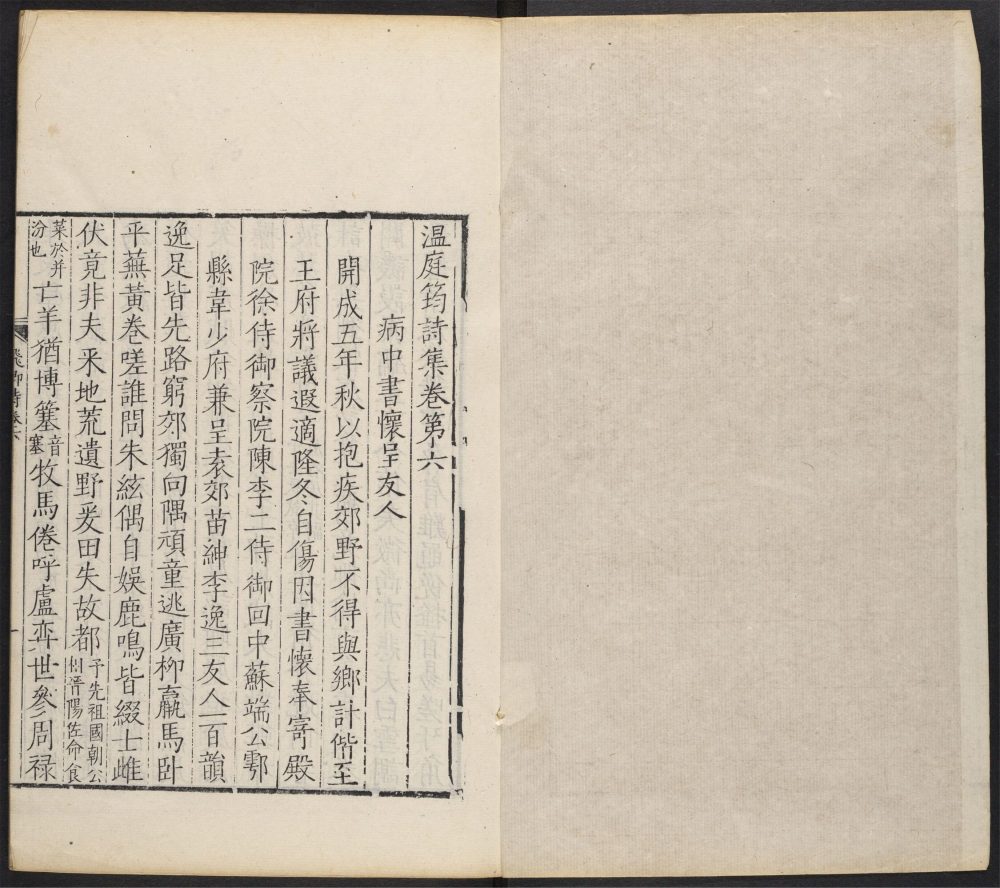 温庭筠詩集卷第六
病中書懷呈友人
開成五年秋以抱疾郊野不得與鄉計偕至
王府將議遐適隆冬自傷因書懷奉寄殿
院徐侍御察院陳李二侍御回中蘇端公鄠
縣韋少府兼呈袁郊苗紳李逸三友人一百韻
逸足皆先路窮郊獨向隅頑童逃廣柳羸馬卧
平蕪黃卷嗟誰問朱絃偶自娛鹿鳴皆綴士雌
伏竟非夫采地荒遺野爰田失故都
予先祖國朝公
相晉陽佐命食
菜於并
汾也
亡羊猶博簺
音
塞
牧馬倦呼盧奕世參周禄